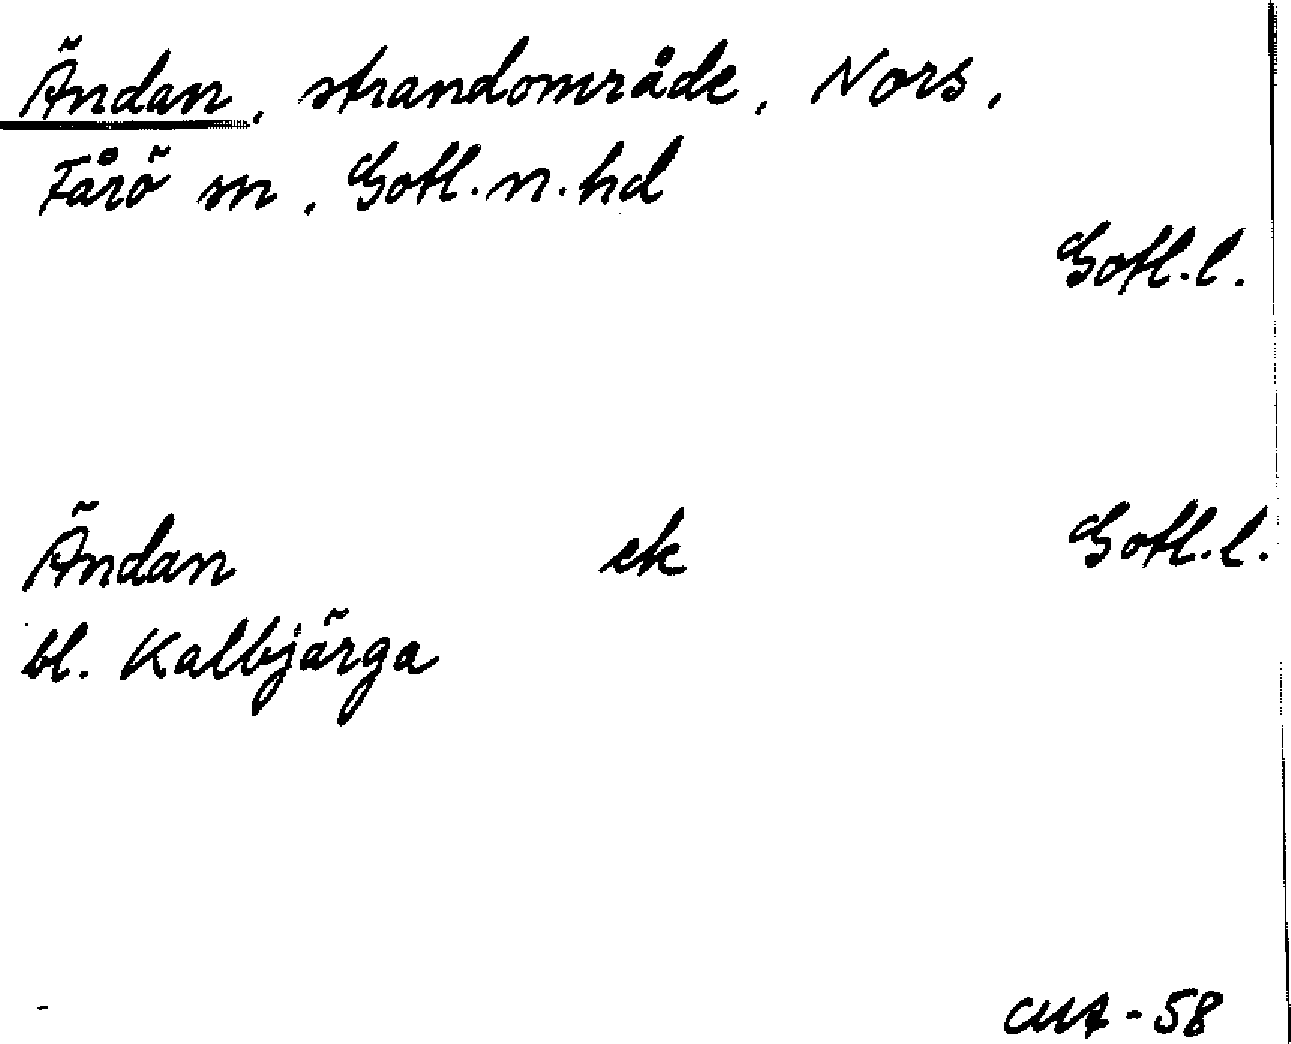 Ändan, strandområde, Nors,
Fårö sn, Gotl. n. hd
Gotl. l.
Ändan ek Gotl. l.
bl. Kalbjärga
CMA - 58